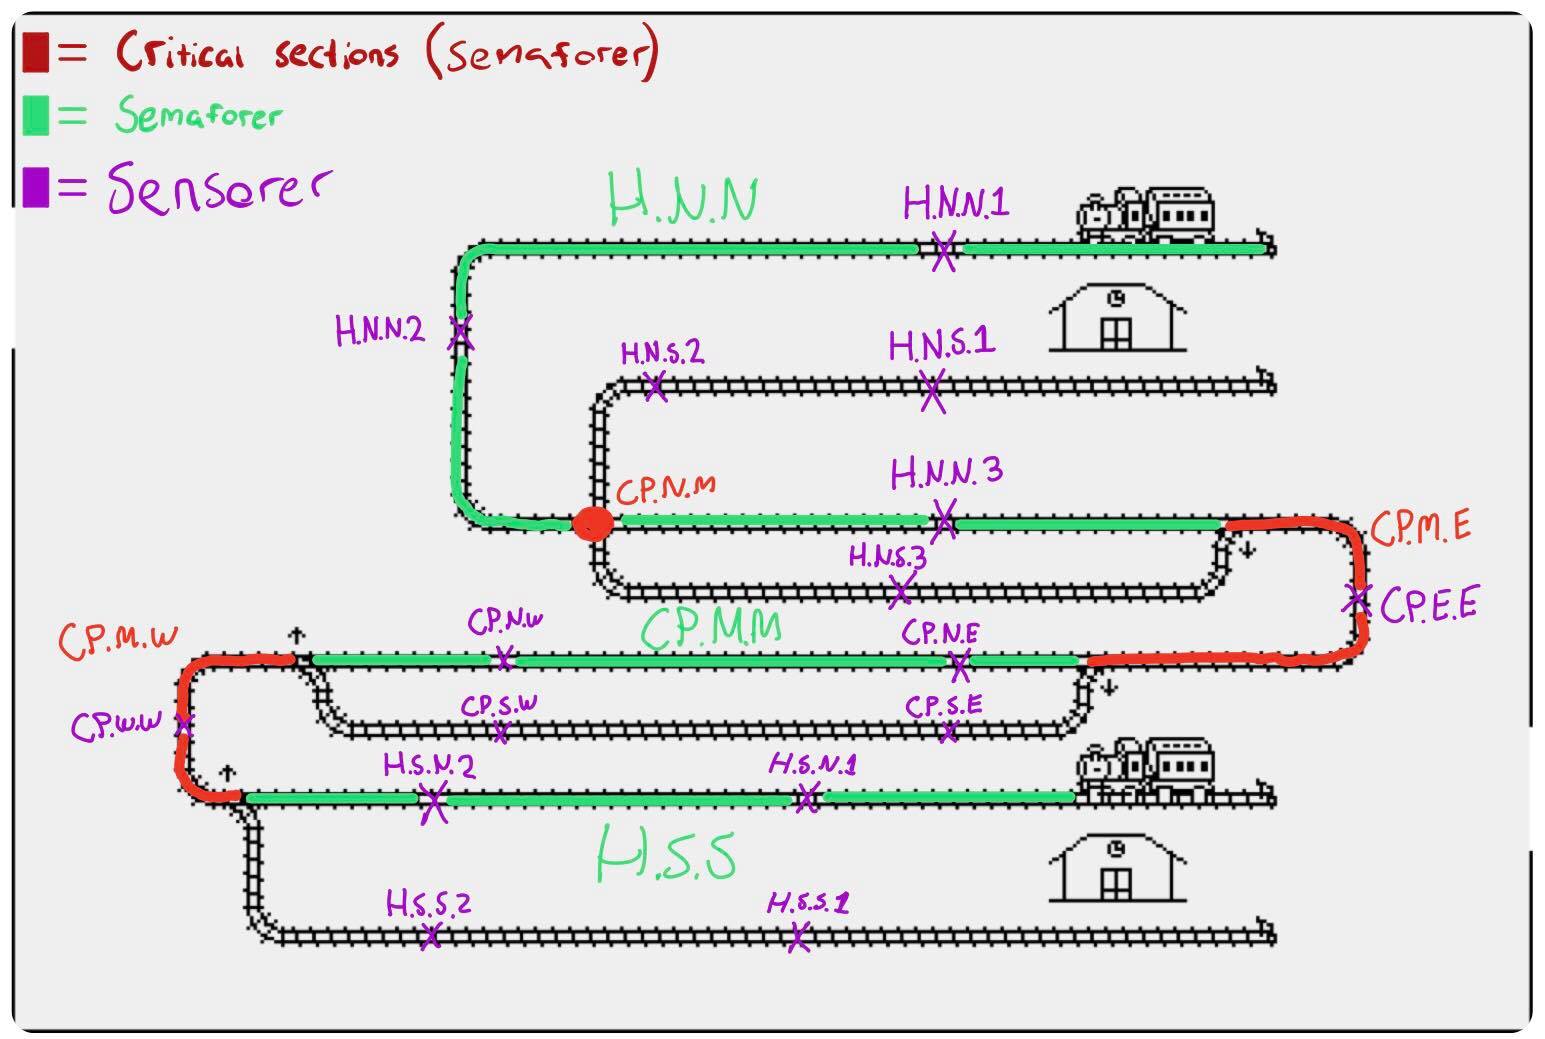 = Critical sections (Semaforer)
= Semaforer
= Sensorer
H.N.N
H.N.N.1
H.N.N.2
H.N.S.2
H.N.S.1
CP.N.M
H.N.N.3
CP.M.E
H.N.S.3
CP.E.E
CP.M.W
CP.N.W
CP.M.M
CP.N.E
CP.W.W
CP.S.W
CP.S.E
H.S.N.2
H.S.N.1
H.S.S
H.S.S.2
H.S.S.1